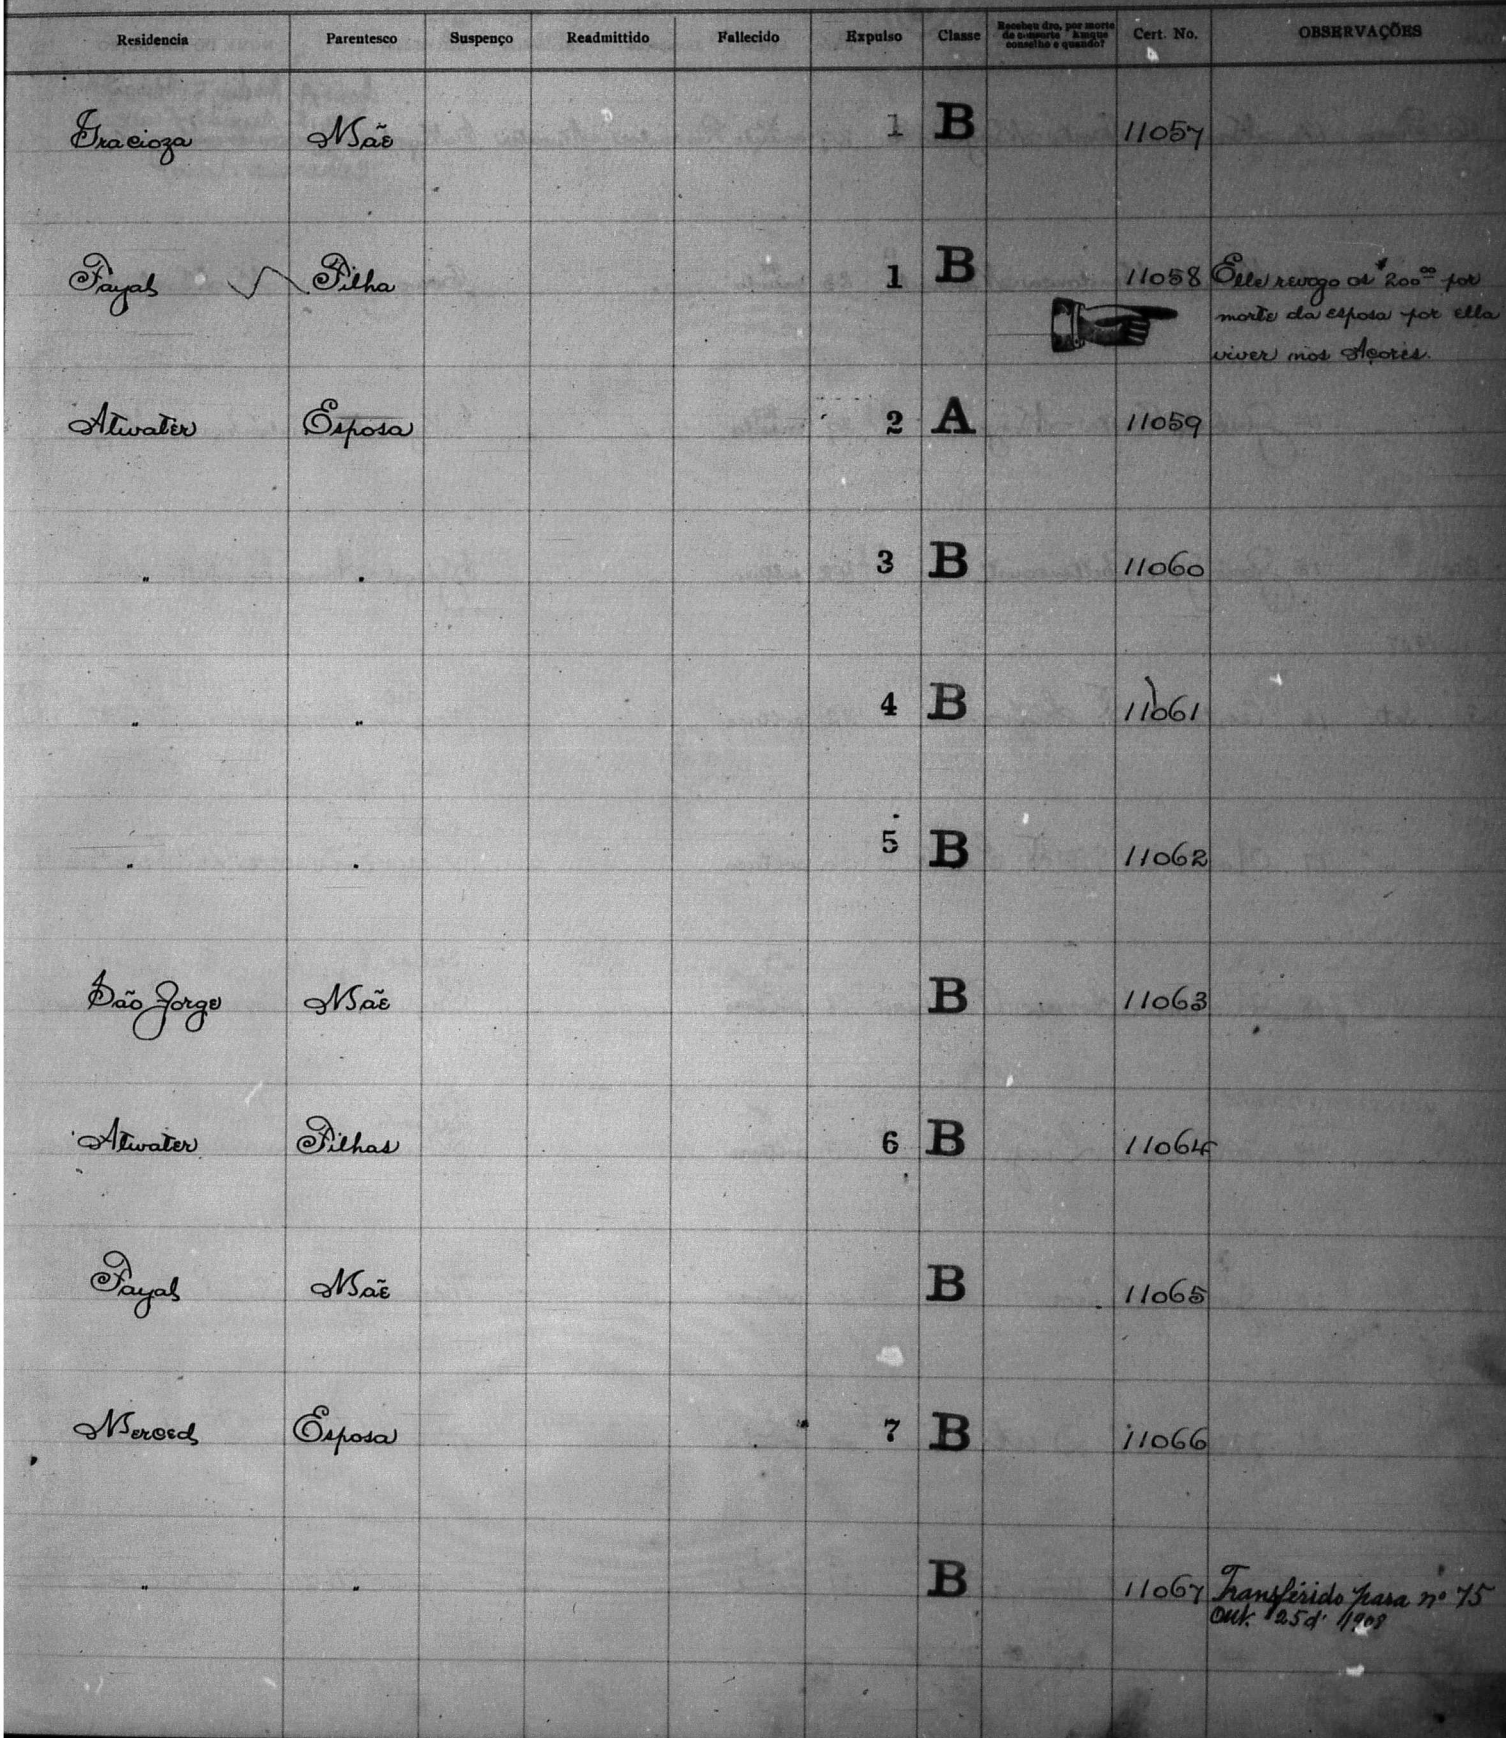 Residencia Parentesco Suspenço Readmittido Fallecido Expulso Classe Recebeu dro. por morte de consorte conselho e quando? Cert. No. OBSERVAÇÕES
Gracioza Mãe 1 B 11057
Fayal Filha 1 B 11058 Elle revogo os $200.00 por
morte da esposa por ella
viver nos Açores.
Atwater Esposa 2 A 11059
" " 3 B 11060
" " 4 B 11061
" " 5 B 11062
São Jorge Mãe B 11063
Atwater Filhas 6 B 11064
Fayal Mãe B 11065
Merced Esposa 7 B 11066
" " B 11067 Transférido para no 75
Out. 25 d' 1908